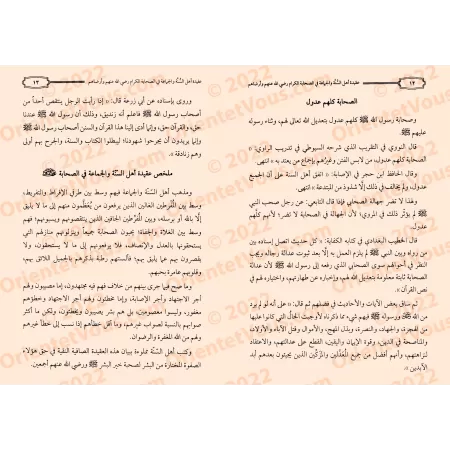 ١٢
عقيدة أهل السنَّة والجماعة في الصحابة الكرام رضي الله عنهم وأرضاهم
الصحابة كلهم عدول
وصحابة رسول الله ﷺ كلهم عدول بتعديل الله تعالى لهم، وثناء رسوله
عليهم ﷺ.
قال النووي في التقريب الذي شرحه السيوطي في تدريب الراوي: «
الصحابة كلهم عدول، من لابس الفتن وغيرهم بإجماع من يعتد به » انتهى.
وقال الحافظ ابن حجر في الإصابة: « اتفق أهل السنَّة على أن الجميع
عدول، ولم يخالف في ذلك إلَّا شذوذ من المبتدعة » انتهى.
ولهذا لا تضر جهالة الصحابي فإذا قال التابعي: عن رجل صحب النبي
ﷺ لم يؤثّر ذلك في المروي؛ لأن الجهالة في الصحابة لا تضر؛ لأنهم كلهم
عدول.
قال الخطيب البغدادي في كتابه الكفاية: « كل حديث اتصل إسناده بين
من رواه وبين النبي ﷺ لم يلزم العمل به إلَّا بعد ثبوت عدالة رجاله ويجب
النظر في أحوالهم سوى الصحابي الذي رفعه إلى رسول الله ﷺ لأن عدالة
الصحابة ثابتة معلومة بتعديل الله لهم، وإخباره عن طهارتهم، واختياره لهم في
نص القرآن ».
ثم ساق بعض الآيات والأحاديث في فضلهم ثم قال: « على أنه لو لم يرد
من الله ورسوله ﷺ فيهم شيء مما ذكرناه لأوجبت الحال التي كانوا عليها
من الهجرة، والجهاد، والنصرة، وبذل المهج، والأموال وقتل الآباء والأولاد،
والمناصحة في الدين، وقوة الإيمان واليقين، القطع على عدالتهم، والاعتقاد
لنزاهتهم، وأنهم أفضل من جميع المُعَدّلين والمزكّين الذين يجيئون بعدهم أبد
الآبدين ».
عقيدة أهل السنَّة والجماعة في الصحابة الكرام رضي الله عنهم وأرضاهم
١٣
وروى بإسناده عن أبي زرعة قال: « إذا رأيت الرجل ينتقص أحداً من
أصحاب رسول الله ﷺ فاعلم أنه زنديق، وذلك أن رسول الله ﷺ عندنا
حق، والقرآن حق، وإنما أدى إلينا هذا القرآن والسنن أصحاب رسول الله ﷺ
وإنما يريدون أن يجرحوا شهودنا؛ ليبطلوا الكتاب والسنة، والجرح بهم أولى
وهم زنادقة ».
ملخص عقيدة أهل السنَّة والجماعة في الصحابة
ومذهب أهل السنَّة والجماعة فيهم وسط بين طرفي الإفراط والتفريط،
وسط بين المُفْرِطين الغالين الذين يرفعون من يُعظّمون منهم إلى ما لا يليق
إلَّا بالله أو برسله، وبين المُفَرّطين الجافين الذين ينتقصونهم ويسبونهم؛ فهم
وسط بين الغلاة والجفاة؛ يحبون الصحابة جميعاً وينزلونهم منازلهم التي
يستحقونها بالعدل والإنصاف، فلا يرفعونهم إلى ما لا يستحقون، ولا
يقصرون بهم عما يليق بهم؛ فألسنتهم رطبة بذكرهم بالجميل اللائق بهم،
وقلوبهم عامرة بحبهم.
وما صح فيما جرى بينهم من خلاف فهم فيه مجتهدون، إما مصيبون ولهم
أجر الاجتهاد وأجر الإصابة، وإما مخطئون ولهم أجر الاجتهاد وخطؤهم
مغفور، وليسوا معصومين، بل هم بشر يصيبون ويخطئون، ولكن ما أكثر
صوابهم بالنسبة لصواب غيرهم، وما أقل خطأهم إذا نسب إلى خطأ غيرهم
ولهم من الله المغفرة والرضوان.
وكتب أهل السنَّة مملوءة ببيان هذه العقيدة الصافية النقية في حق هؤلاء
الصفوة المختارة من البشر لصحبة خير البشر ﷺ ورضي الله عنهم أجمعين.
© 2022
OrientetVous.com